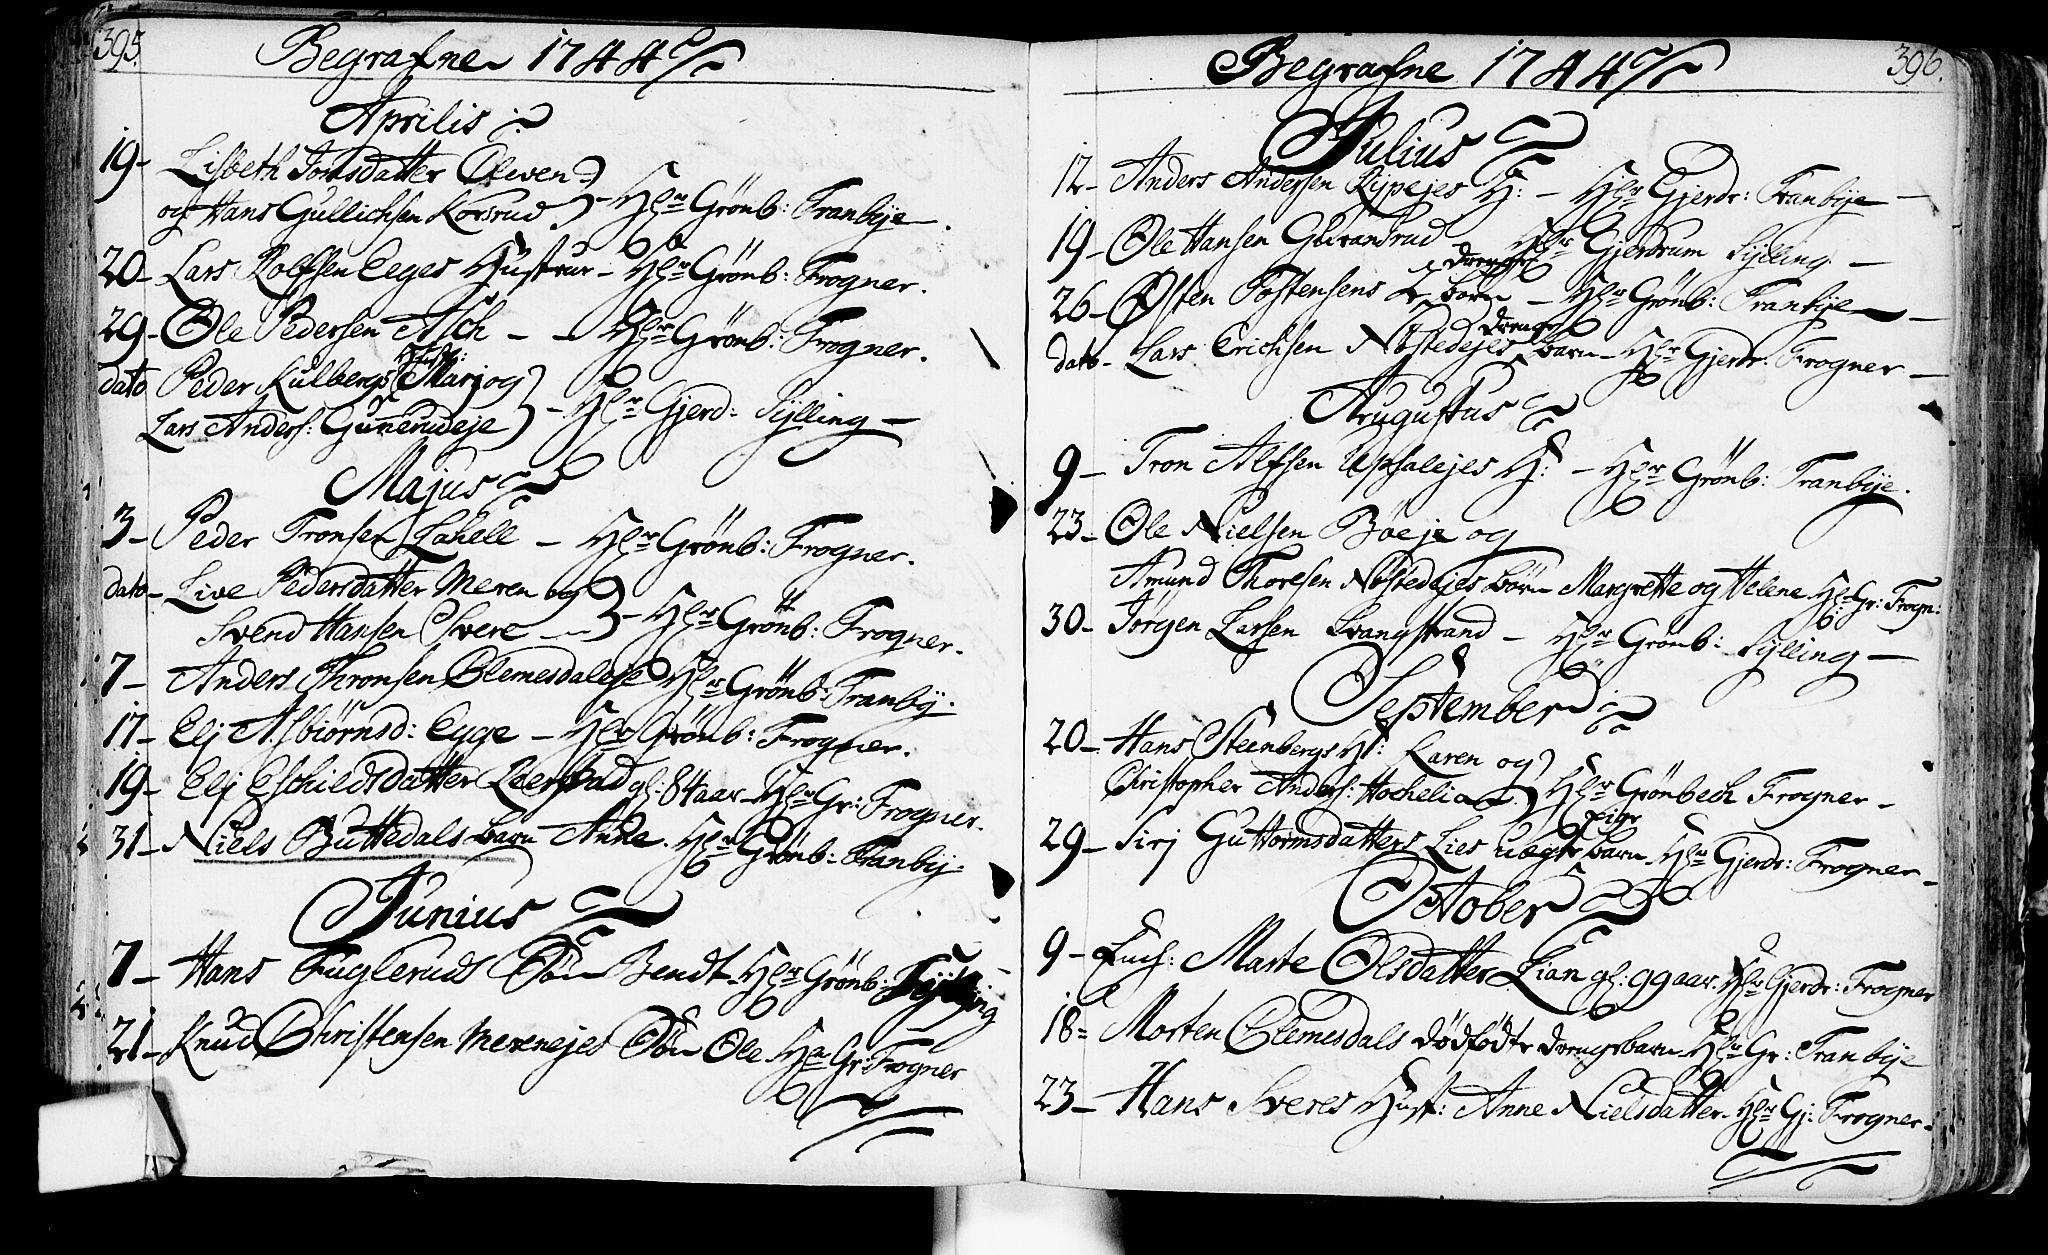 395.
Begrafne 1744
Aprilis
19- Lisbeth Jonsdatter Oleven
og Hans Gullichsen Korsrud. - Hlr Grönb: Tranbye.
20- Lars Rolfsen Eeges Hustrue - Hlr Grönb: Frogner.
29- Ole Pedersen Ask - - Hlr Grönb: Frogner.
Hust:
dato Peder Kulbergs Mari og
Lars Anders: Gunerudeje - Hlr Gjerd: Sylling -
Majus
3- Peder Tronsen Lahell - Hlr Grönb: Frogner.
dato- Live Pedersdatter Meren og
Svend Hansen Svere - Hlr Grönb: Frogner.
7- Anders Thronsen Clemesdaleje Hlr Grönb: Tranby.
17- Eli Asbiörnsd: Egge - Hlr Grönb: Frogner.
19- Eli Eschildsdatter Leerstad gl: 84 aar - Hlr Gr: Frogner.
31- Niels Buttedals barn Anne. Hlr Grönb: Tranby.
Junius
7- Hans Fuglerud Sön Bendt - Hlr Grönb: Sylling
21- Knud Christensen Merenejes Sön Ole. Hr Gr: Frogner
396.
Begrafne 1744
Julius
12- Anders Andersen Rypejes H: - Hlr Gjerdr: Tranbye -
19- Ole Hansen Gbrandrud Hlr Gjerdrum Sylling -
drenge
26- Østen Tostensens 2 börn - Hlr Grönb: Tranbye -
drenge
dato- Lars Erichsen Nöstedejes barn - Hlr Gjerdr. Frogner -
Augustus
9- Tron Alfsen Upsalejes H: - Hlr Grönb: Tranbye.
23- Ole Nielsen Böeje og
Amund Thoresen Nöstedejes börn Margrette og Helene Hlr Gr: Frogn:
30- Jörgen Larsen Svangstrand - Hlr Grönb: Sylling -
September
20- Hans Steenbergs H: Karen og
Christopher Anders: Hochelien. Hlr Grönbech Frogner -
Pige
29- Siri Guttormsdatters Lies uægte barn Hlr Gjerdr: Frogner -
October
9- Ench: Marte Olsdatter Lian gl: 99 aar. Hlr Gjerdr: Frogner
18- Morten Clemesdals dödfödte drengebarn Hlr Gr: Tranbye
23- Hans Sveres Hust: Anne Nielsdatter. Hlr Gj: Frogner.